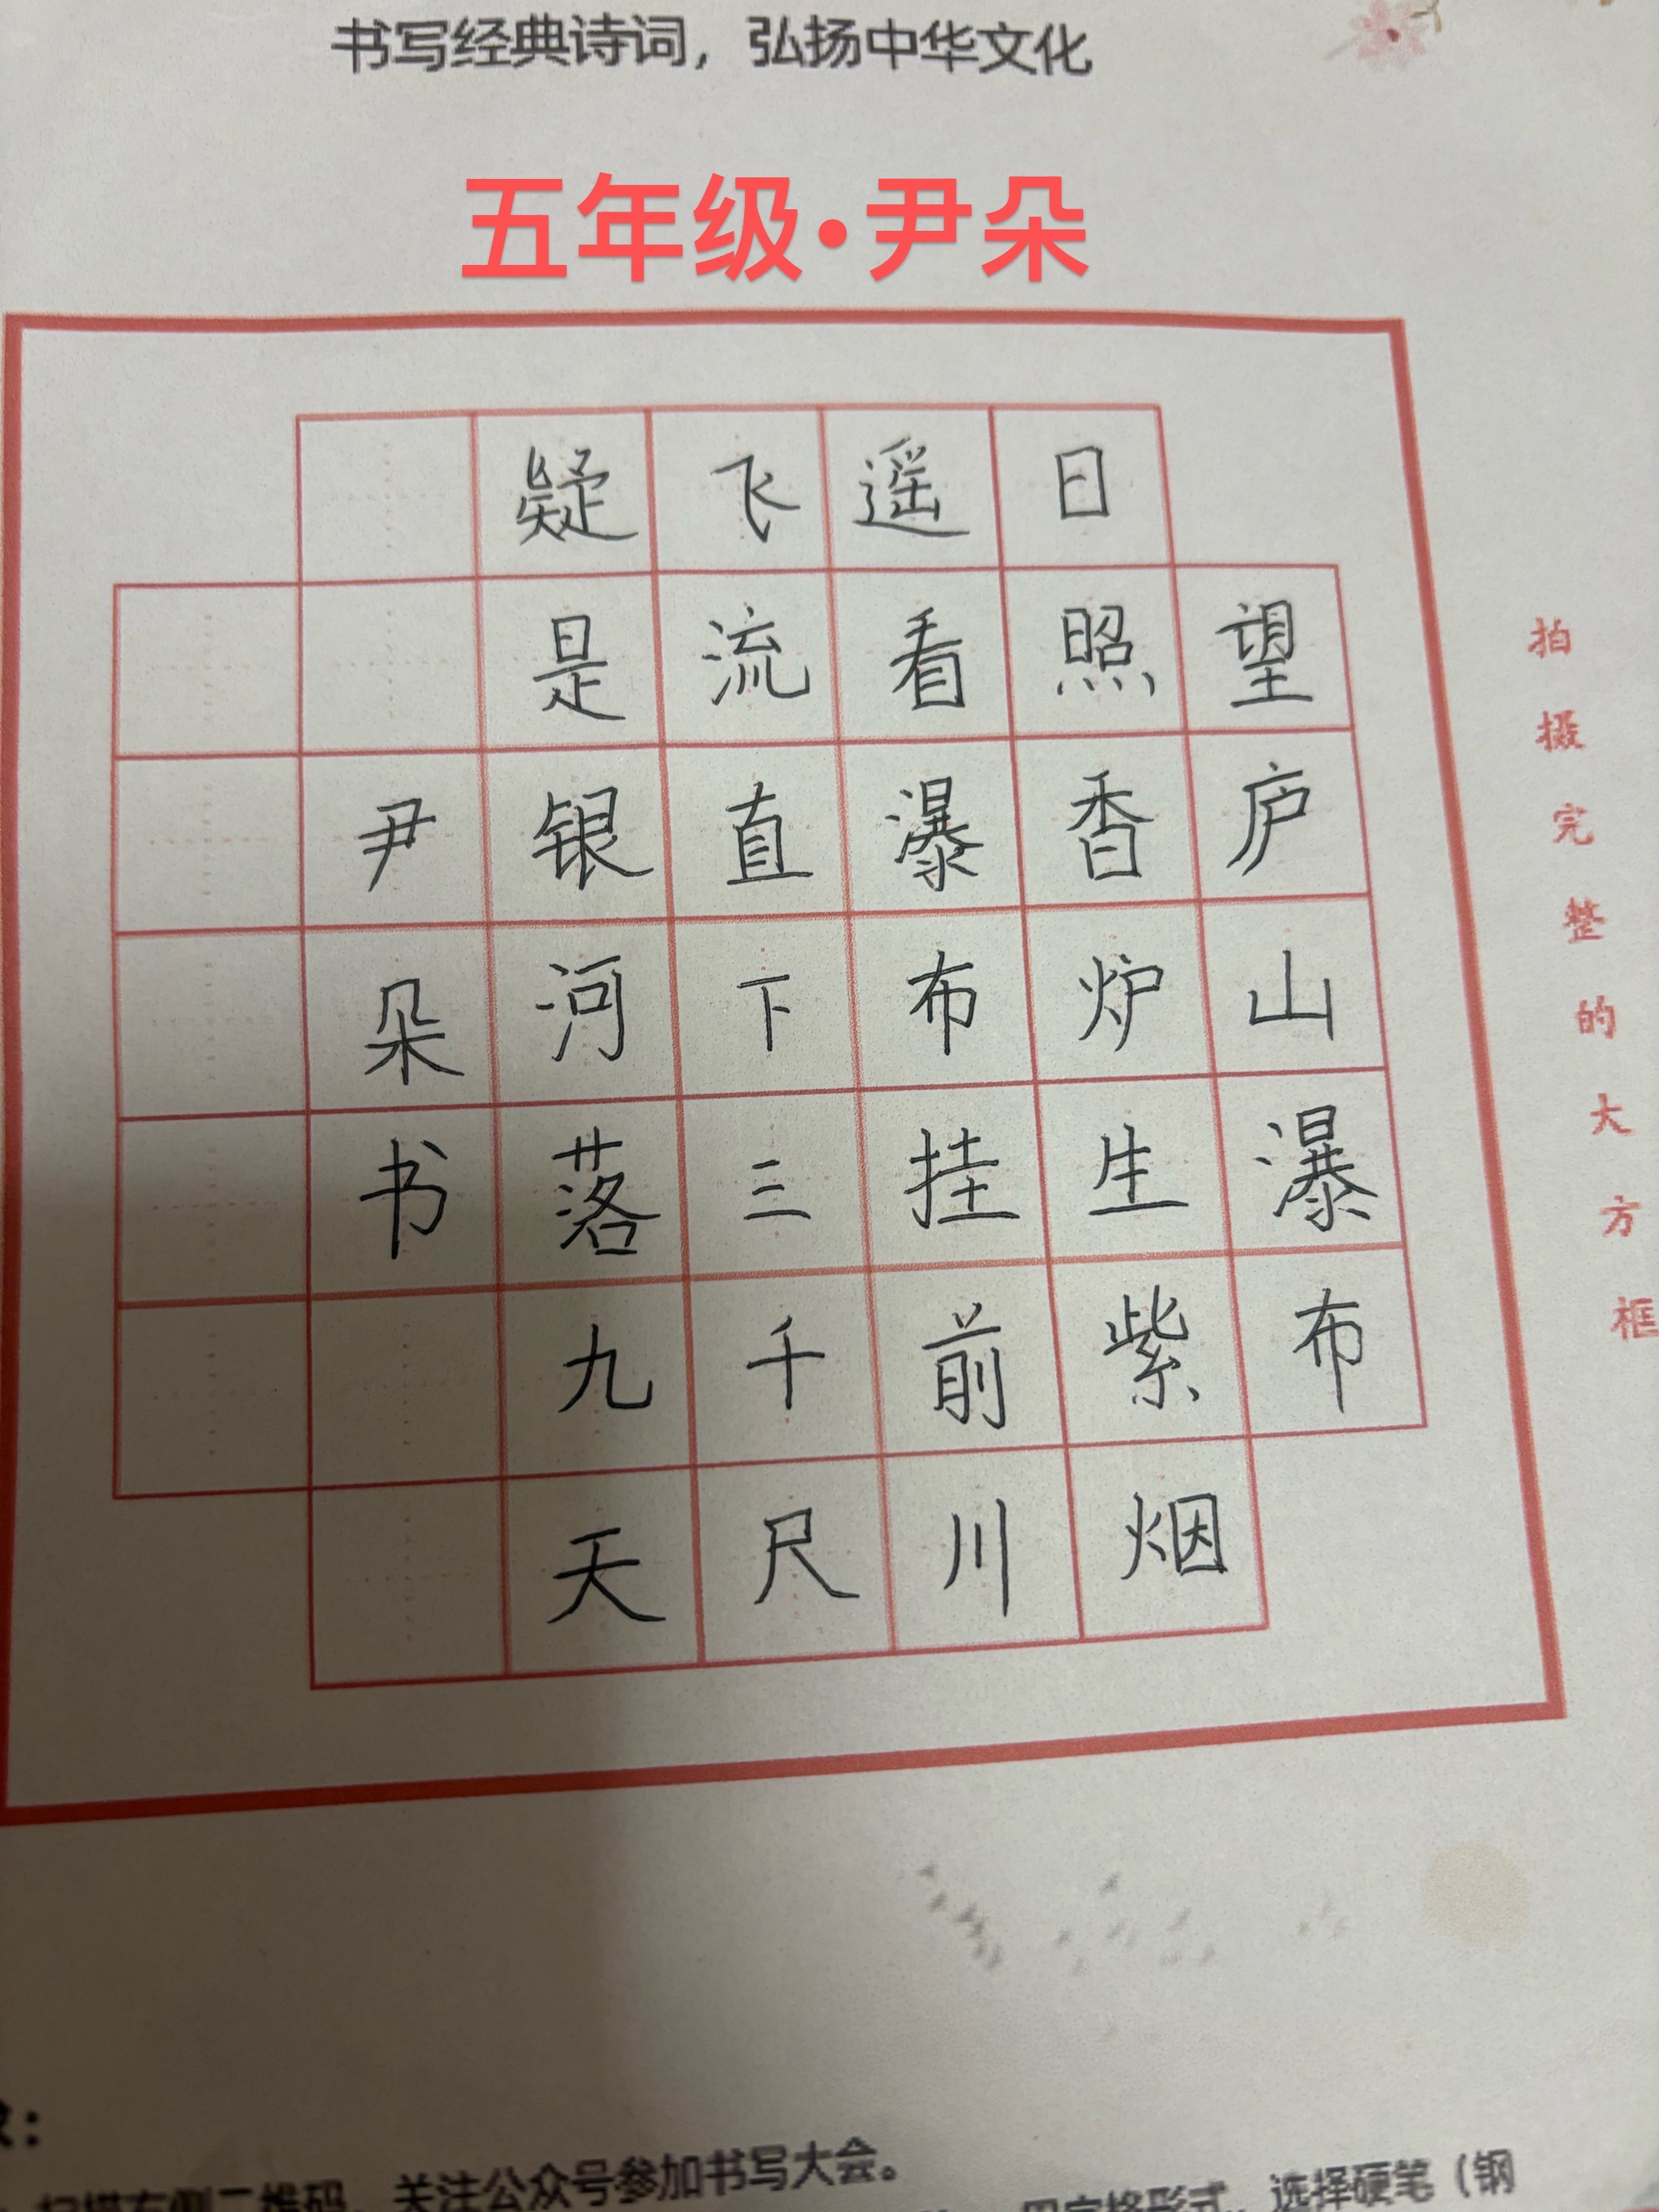 书写经典诗词，弘扬中华文化
五年级·尹朵
望庐山瀑布
日照香炉生紫烟
遥看瀑布挂前川
飞流直下三千尺
疑是银河落九天
尹朵书
拍摄完整的大方框
扫描右侧二维码，关注公众号参加书写大会。
选择硬笔（钢